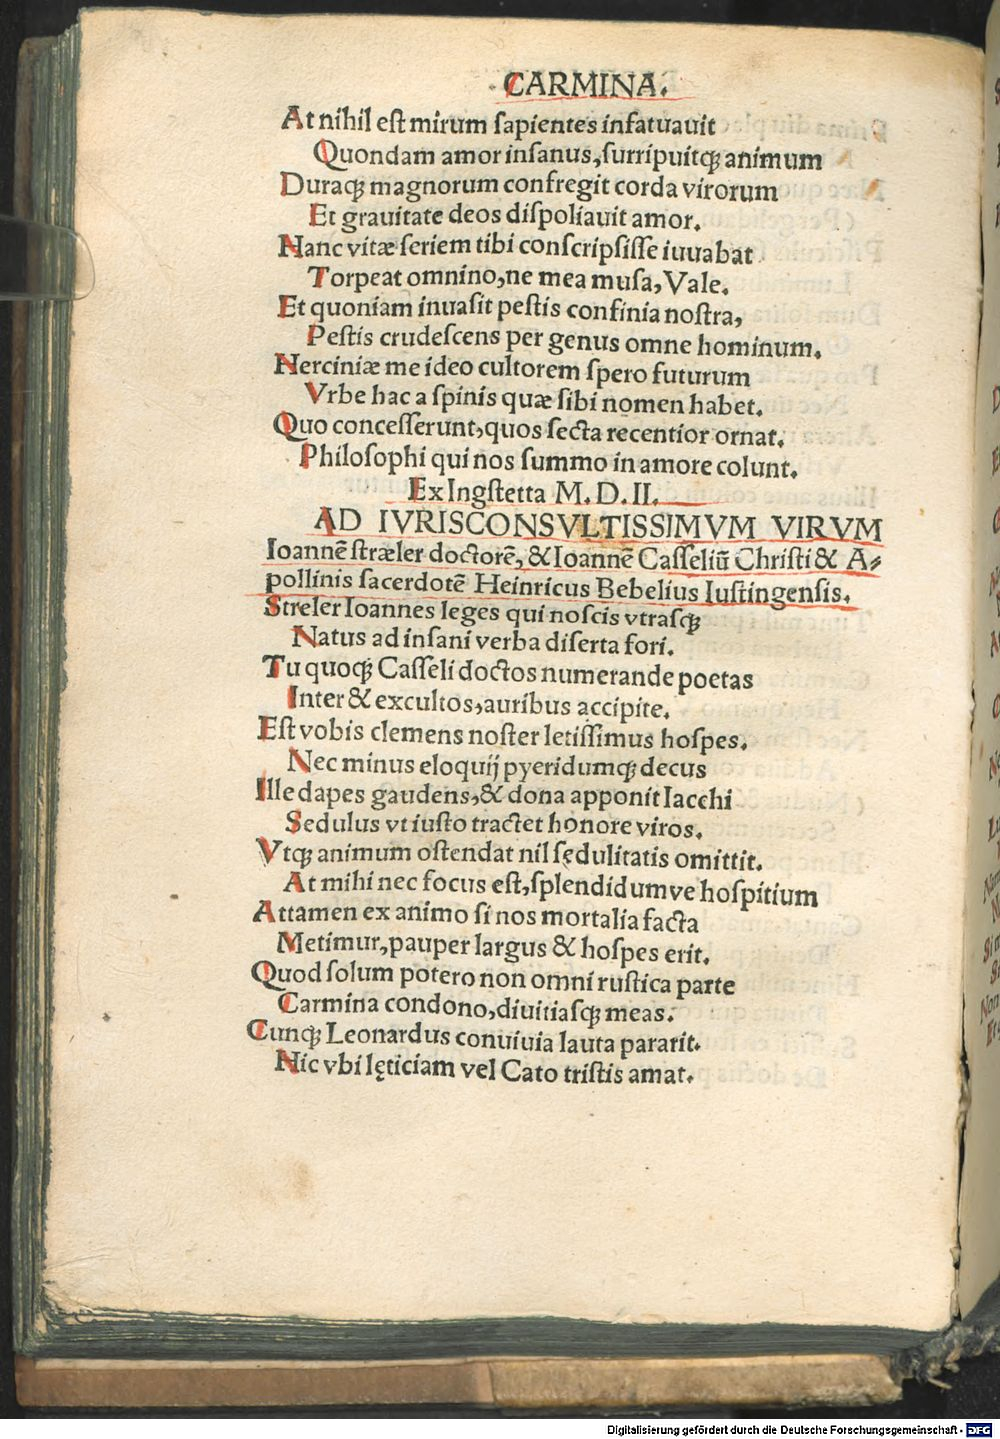 CARMINA.
At nihil eſt mirum ſapientes infatuauit
Quondam amor inſanus, ſurripuitqꝫ animum
Duraqꝫ magnorum confregit corda virorum
Et grauitate deos diſpoliauit amor.
Nanc vitæ ſeriem tibi conſcripſiſſe iuuabat
Torpeat omnino, ne mea muſa, Vale.
Et quoniam inuaſit peſtis confinia noſtra,
Peſtis crudeſcens per genus omne hominum.
Nerciniæ me ideo cultorem ſpero futurum
Vrbe hac a ſpinis quæ ſibi nomen habet.
Quo conceſſerunt, quos ſecta recentior ornat.
Philoſophi qui nos ſummo in amore colunt.
Ex Ingſtetta M. D. II.
AD IVRISCONSVLTISSIMVM VIRVM
Ioannē ſtræler doctorē, & Ioannē Caſſeliū Chriſti & A⸗
pollinis ſacerdotē Heinricus Bebelius Iuſtingenſis.
Streler Ioannes leges qui noſcis vtraſqꝫ
Natus ad inſani verba diſerta fori.
Tu quoqꝫ Caſſeli doctos numerande poetas
Inter & excultos, auribus accipite.
Eſt vobis clemens noſter letiſſimus hoſpes.
Nec minus eloquij pyeridumqꝫ decus
Ille dapes gaudens, & dona apponit Iacchi
Sedulus vt iuſto tractet honore viros.
Vtqꝫ animum oſtendat nil ſędulitatis omittit.
At mihi nec focus eſt, ſplendidumve hoſpitium
Attamen ex animo ſi nos mortalia facta
Metimur, pauper largus & hoſpes erit.
Quod ſolum potero non omni ruſtica parte
Carmina condono, diuitiaſqꝫ meas.
Cunqꝫ Leonardus conuiuia lauta pararit.
Nic vbi lęticiam vel Cato triſtis amat.
Digitalisierung gefördert durch die Deutsche Forschungsgemeinschaft - DFG